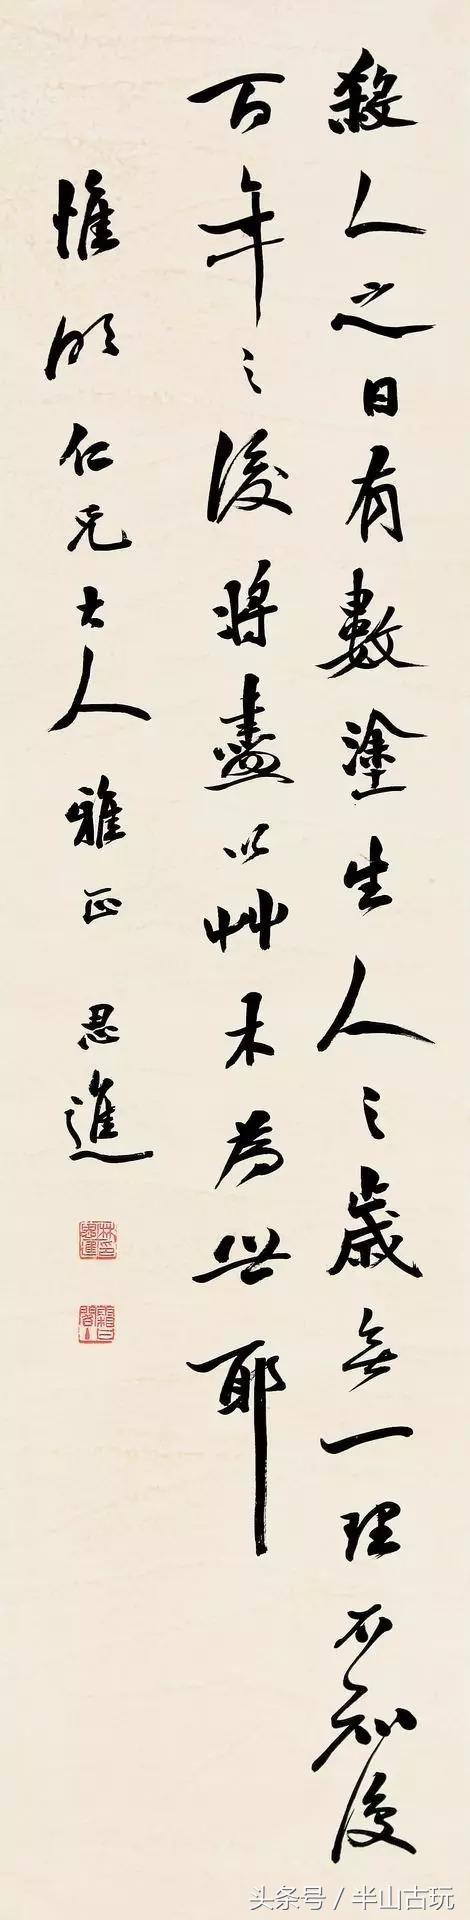 殺人之日有數塗生人之歲無一理不知後
百年之後將盡以艸木為世耶
惟明仁兄大人雅正 思進
林思進印
頭条号／半山古玩